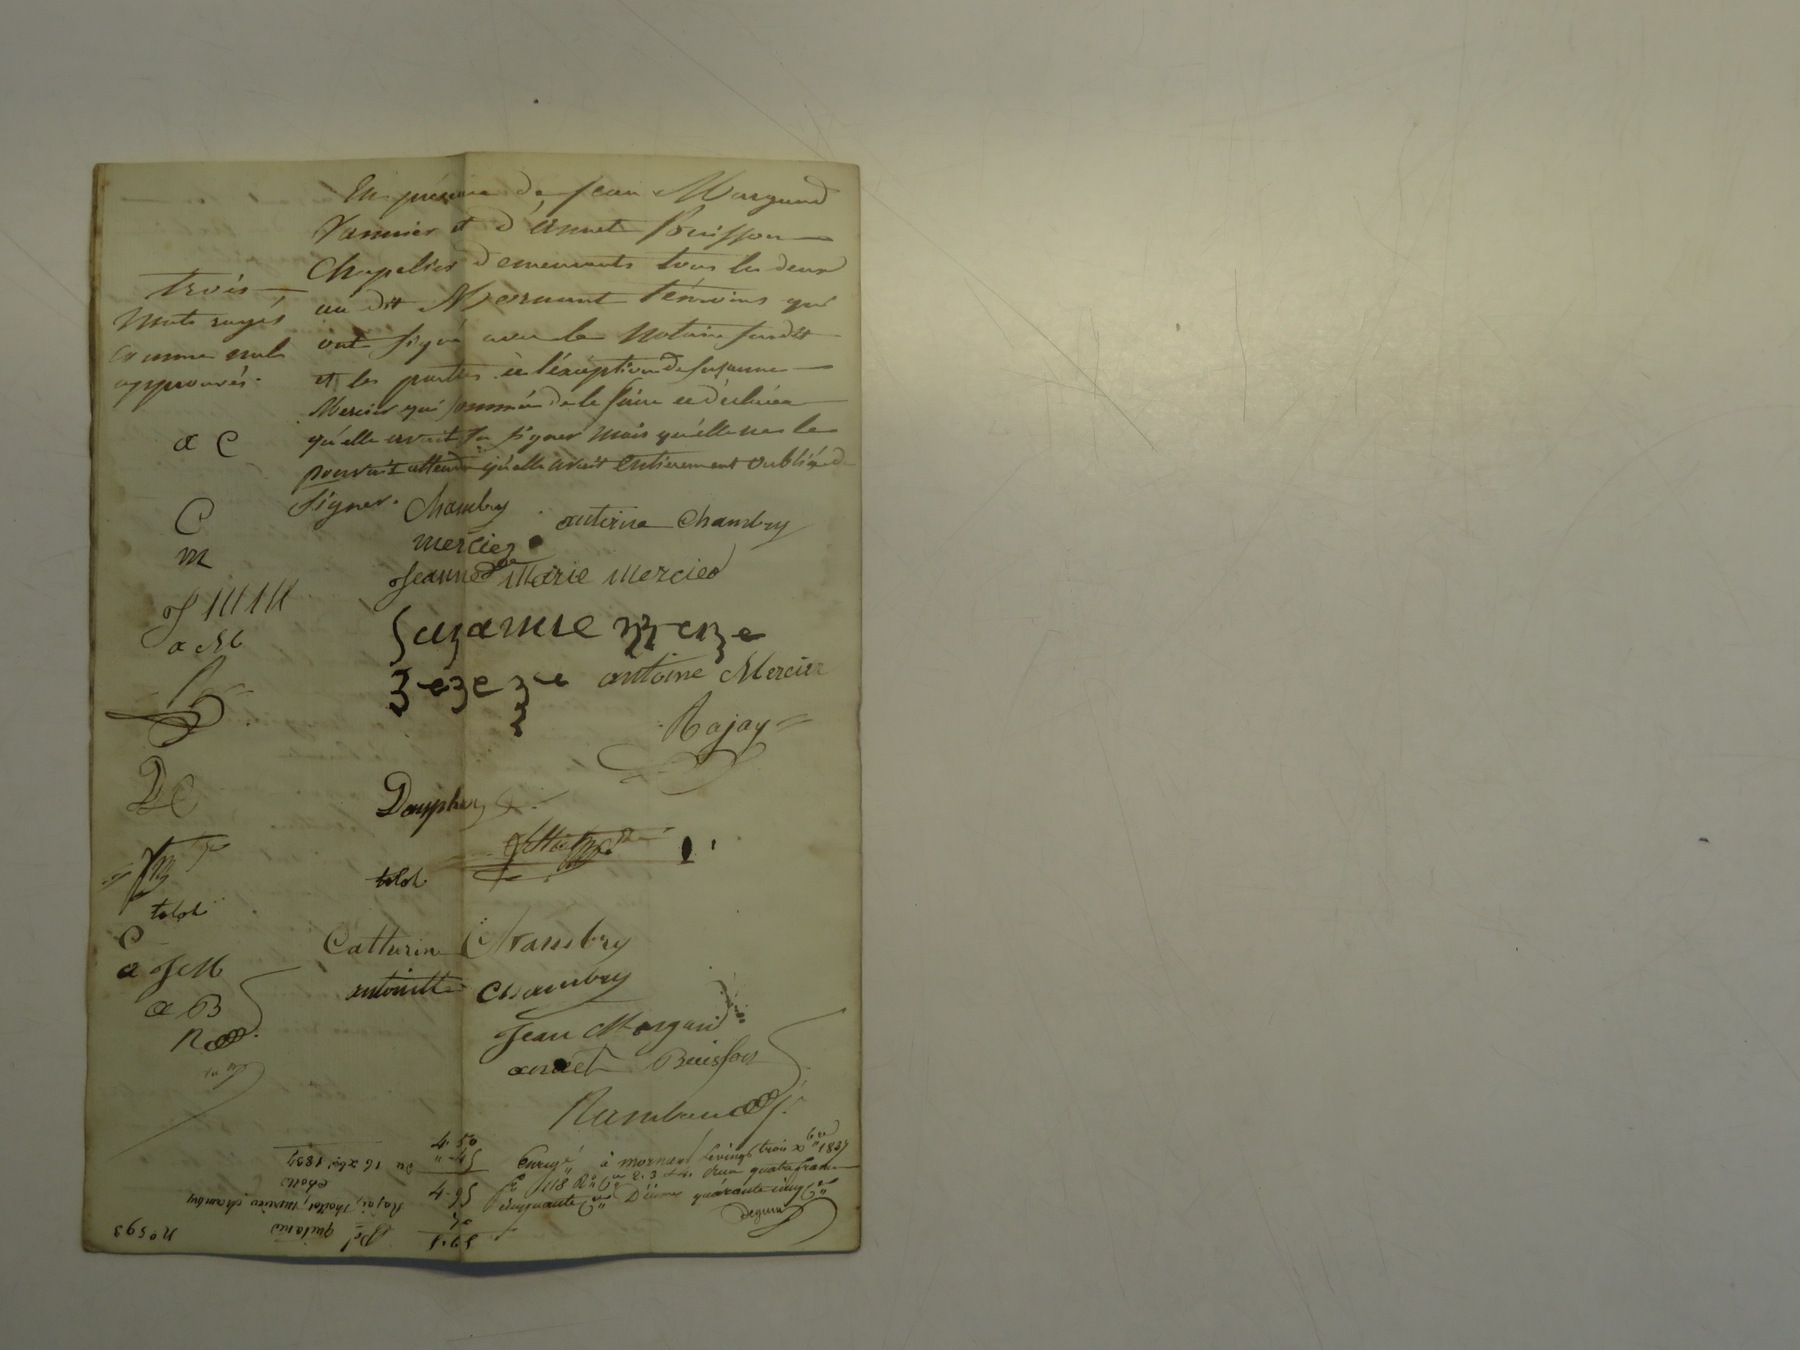 En présence de Jean Margand
Vannier et d'annet Buisson
Chapelier demeurants tous les deux
au dit Mornant témoins qui
ont signé avec le Notaire susdit
et les parties à l'exception de Suzanne
Mercier qui sommée de le faire a déclaré
qu'elle avait su signer mais qu'elle ne le
pouvait attendu qu'elle avait entierement oublié de
signer.
trois
mots rayés
comme nuls
approuvés.
a C
C
m
J M M
a M
D C
tolot
C
a J M
a B
Chambry
anterine Chambry
mercier
Jeanne Marie Mercier
Suzanne
antoine Mercier
Rajay
Dauphin
tolot
Catherine Chambry
antoinette Chambry
Jean Margand
annet Buisson
Enregé à mornant le vingt trois Xbre 1837
fo 118 Ro Cs 2. 3 et 4. Reçu quatre francs
cinquante Cmes Décime quarante cinq Cmes
4 50
4-95
Du 16 xbre 1837
Rajai, Thollot, mercier, chambry
quitance
No 593